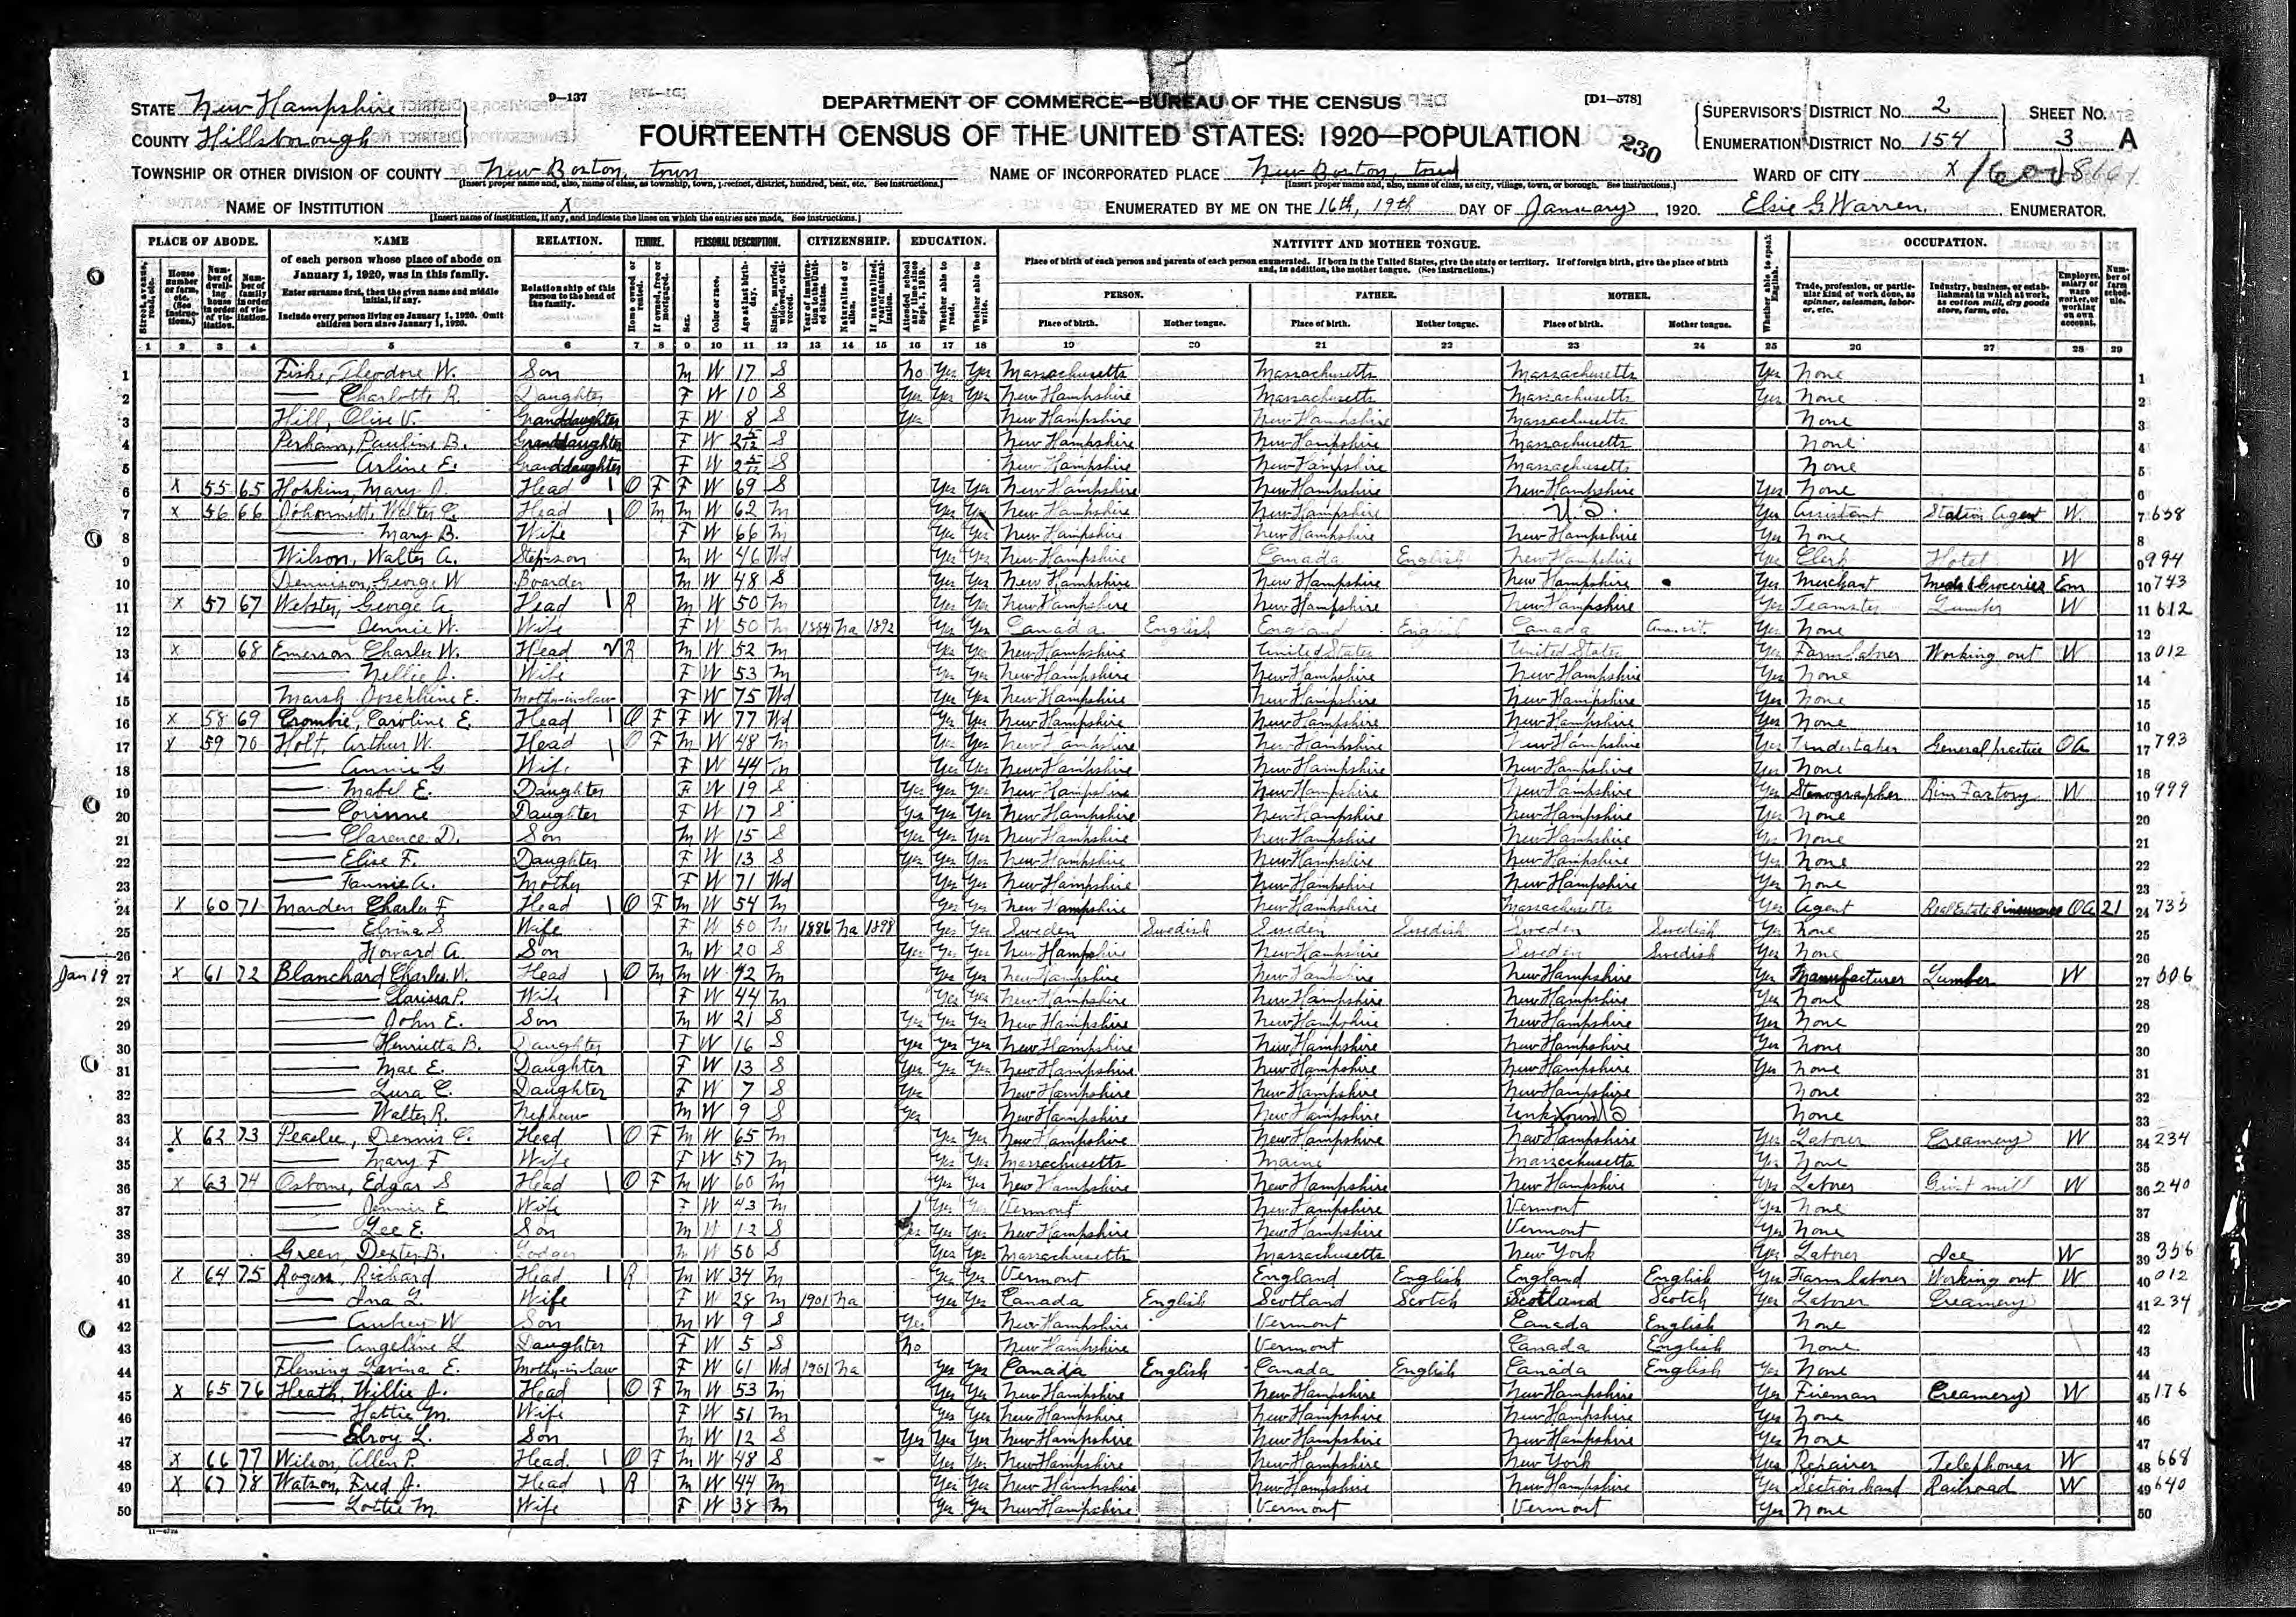 9—137
[D1—578]
STATE New Hampshire
COUNTY Hillsborough
DEPARTMENT OF COMMERCE—BUREAU OF THE CENSUS
FOURTEENTH CENSUS OF THE UNITED STATES: 1920—POPULATION
230
SUPERVISOR'S DISTRICT No. 2
ENUMERATION DISTRICT No. 154
SHEET No.
3 A
TOWNSHIP OR OTHER DIVISION OF COUNTY New Boston, town
[Insert proper name and, also, name of class, as township, town, precinct, district, hundred, beat, etc. See instructions.]
NAME OF INCORPORATED PLACE New Boston, town
[Insert proper name and, also, name of class, as city, village, town, or borough. See instructions.]
WARD OF CITY X
NAME OF INSTITUTION X
[Insert name of institution, if any, and indicate the lines on which the entries are made. See instructions.]
ENUMERATED BY ME ON THE 16th, 19th DAY OF January, 1920. Elsie G Warren, ENUMERATOR.
PLACE OF ABODE. NAME RELATION. TENURE. PERSONAL DESCRIPTION. CITIZENSHIP. EDUCATION. NATIVITY AND MOTHER TONGUE. OCCUPATION.
of each person whose place of abode on January 1, 1920, was in this family.
Enter surname first, then the given name and middle initial, if any.
Include every person living on January 1, 1920. Omit children born since January 1, 1920.
Relationship of this person to the head of the family.
Place of birth of each person and parents of each person enumerated. If born in the United States, give the state or territory. If of foreign birth, give the place of birth and, in addition, the mother tongue. (See instructions.)
PERSON. FATHER. MOTHER.
Place of birth. Mother tongue. Place of birth. Mother tongue. Place of birth. Mother tongue.
Whether able to speak English.
Trade, profession, or particular kind of work done, as spinner, salesman, laborer, etc.
Industry, business, or establishment in which at work, as cotton mill, dry goods store, farm, etc.
Employer, salary or wage worker, or working on own account.
Number of farm schedule.
1 2 3 4 5 6 7 8 9 10 11 12 13 14 15 16 17 18 19 20 21 22 23 24 25 26 27 28 29
1 Fiske, Theodore W. Son M W 17 S No Yes Yes Massachusetts Massachusetts Massachusetts Yes None 1
2 — Charlotte R. Daughter F W 10 S Yes Yes Yes New Hampshire Massachusetts Massachusetts Yes None 2
3 Hill, Olive V. Granddaughter F W 8 S Yes New Hampshire New Hampshire Massachusetts None 3
4 Perham, Pauline B. Granddaughter F W 2 5/12 S New Hampshire New Hampshire Massachusetts None 4
5 — Arline E. Granddaughter F W 2 5/12 S New Hampshire New Hampshire Massachusetts None 5
6 X 55 65 Hopkins, Mary J. Head 1 O F F W 69 S Yes Yes New Hampshire New Hampshire New Hampshire Yes None 6
7 X 56 66 Walter C. Head 1 O M M W 62 M Yes Yes New Hampshire New Hampshire U.S. Yes Assistant Station Agent W 7 658
8 — Mary B. Wife F W 66 M Yes Yes New Hampshire New Hampshire New Hampshire Yes None 8
9 Wilson, Walter A. Stepson M W 46 Wd Yes Yes New Hampshire Canada English New Hampshire Yes Clerk Hotel W 9 994
10 Dennison, George W. Boarder M W 48 S Yes Yes New Hampshire New Hampshire New Hampshire Yes Merchant Groceries Em 10 743
11 X 57 67 Webster, George A. Head 1 R M W 50 M Yes Yes New Hampshire New Hampshire New Hampshire Yes Teamster Lumber W 11 612
12 — Jennie W. Wife F W 50 M 1884 Na 1892 Yes Yes Canada English England English Canada Yes None 12
13 X 68 Emerson Charles W. Head R M W 52 M Yes Yes New Hampshire United States United States Yes Farm laborer Working out W 13 012
14 — Nellie J. Wife F W 53 M Yes Yes New Hampshire New Hampshire New Hampshire Yes None 14
15 Marsh Josephine E. Mother-in-law F W 75 Wd Yes Yes New Hampshire New Hampshire New Hampshire Yes None 15
16 X 58 69 Crombie, Caroline E. Head 1 O F F W 77 Wd Yes Yes New Hampshire New Hampshire New Hampshire Yes None 16
17 X 59 70 Holt, Arthur W. Head 1 O F M W 48 M Yes Yes New Hampshire New Hampshire New Hampshire Yes Undertaker General practice OA 17 793
18 — Annie G. Wife F W 44 M Yes Yes New Hampshire New Hampshire New Hampshire Yes None 18
19 — Mabel E. Daughter F W 19 S Yes Yes Yes New Hampshire New Hampshire New Hampshire Yes Stenographer Rim Factory W 19 999
20 — Corinne Daughter F W 17 S Yes Yes Yes New Hampshire New Hampshire New Hampshire Yes None 20
21 — Clarence D. Son M W 15 S Yes Yes Yes New Hampshire New Hampshire New Hampshire Yes None 21
22 — Elise F. Daughter F W 13 S Yes Yes Yes New Hampshire New Hampshire New Hampshire Yes None 22
23 — Fannie A. Mother F W 71 Wd Yes Yes New Hampshire New Hampshire New Hampshire Yes None 23
24 X 60 71 Marden Charles F. Head 1 O F M W 54 M Yes Yes New Hampshire New Hampshire Massachusetts Yes Agent Real Estate & insurance OA 21 24 735
25 — Elvina S Wife F W 50 M 1886 Na 1898 Yes Yes Sweden Swedish Sweden Swedish Sweden Swedish Yes None 25
26 Howard A. Son M W 20 S Yes Yes Yes New Hampshire New Hampshire Sweden Swedish Yes None 26
Jan 19 27 X 61 72 Blanchard Charles W. Head 1 O M M W 42 M Yes Yes New Hampshire New Hampshire New Hampshire Yes Manufacturer Lumber W 27 506
28 — Clarissa P. Wife F W 44 M Yes Yes New Hampshire New Hampshire New Hampshire Yes None 28
29 — John E. Son M W 21 S Yes Yes Yes New Hampshire New Hampshire New Hampshire Yes None 29
30 — Henrietta B. Daughter F W 16 S Yes Yes Yes New Hampshire New Hampshire New Hampshire Yes None 30
31 — Mae E. Daughter F W 13 S Yes Yes Yes New Hampshire New Hampshire New Hampshire Yes None 31
32 — Lura C. Daughter F W 7 S Yes New Hampshire New Hampshire New Hampshire None 32
33 — Walter R. Nephew M W 9 S Yes New Hampshire New Hampshire Unknown None 33
34 X 62 73 Peaslee, Dennis C. Head 1 O F M W 65 M Yes Yes New Hampshire New Hampshire New Hampshire Yes Laborer Creamery W 34 234
35 — Mary F Wife F W 57 M Yes Yes Massachusetts Maine Massachusetts Yes None 35
36 X 63 74 Osborne, Edgar S Head 1 O F M W 60 M Yes Yes New Hampshire New Hampshire New Hampshire Yes Laborer Grist mill W 36 240
37 — Jennie E Wife F W 43 M Yes Yes Vermont New Hampshire Vermont Yes None 37
38 — Lee E. Son M W 12 S Yes Yes Yes New Hampshire New Hampshire Vermont Yes None 38
39 Green, Dexter B. Lodger M W 50 S Yes Yes Massachusetts Massachusetts New York Yes Laborer Ice W 39 356
40 X 64 75 Rogers, Richard Head 1 R M W 34 M Yes Yes Vermont England English England English Yes Farm laborer Working out W 40 012
41 — Ina L. Wife F W 28 M 1901 Na Yes Yes Canada English Scotland Scotch Scotland Scotch Yes Laborer Creamery 41 234
42 — Aubrey W Son M W 9 S Yes New Hampshire Vermont Canada English None 42
43 — Angeline L Daughter F W 5 S No New Hampshire Vermont Canada English None 43
44 Fleming Lavina E. Mother-in-law F W 61 Wd 1901 Na Yes Yes Canada English Canada English Canada English Yes None 44
45 X 65 76 Heath, Willie J. Head 1 O F M W 53 M Yes Yes New Hampshire New Hampshire New Hampshire Yes Fireman Creamery W 45 176
46 — Hattie M. Wife F W 51 M Yes Yes New Hampshire New Hampshire New Hampshire Yes None 46
47 — Elroy L. Son M W 12 S Yes Yes Yes New Hampshire New Hampshire New Hampshire Yes None 47
48 X 66 77 Wilson, Allen P. Head 1 O F M W 48 S Yes Yes New Hampshire New Hampshire New York Yes Repairer Telephones W 48 668
49 X 67 78 Watson, Fred J. Head 1 R M W 44 M Yes Yes New Hampshire New Hampshire New Hampshire Yes Section hand Railroad W 49 640
50 — Lottie M. Wife F W 38 M Yes Yes New Hampshire Vermont Vermont Yes None 50